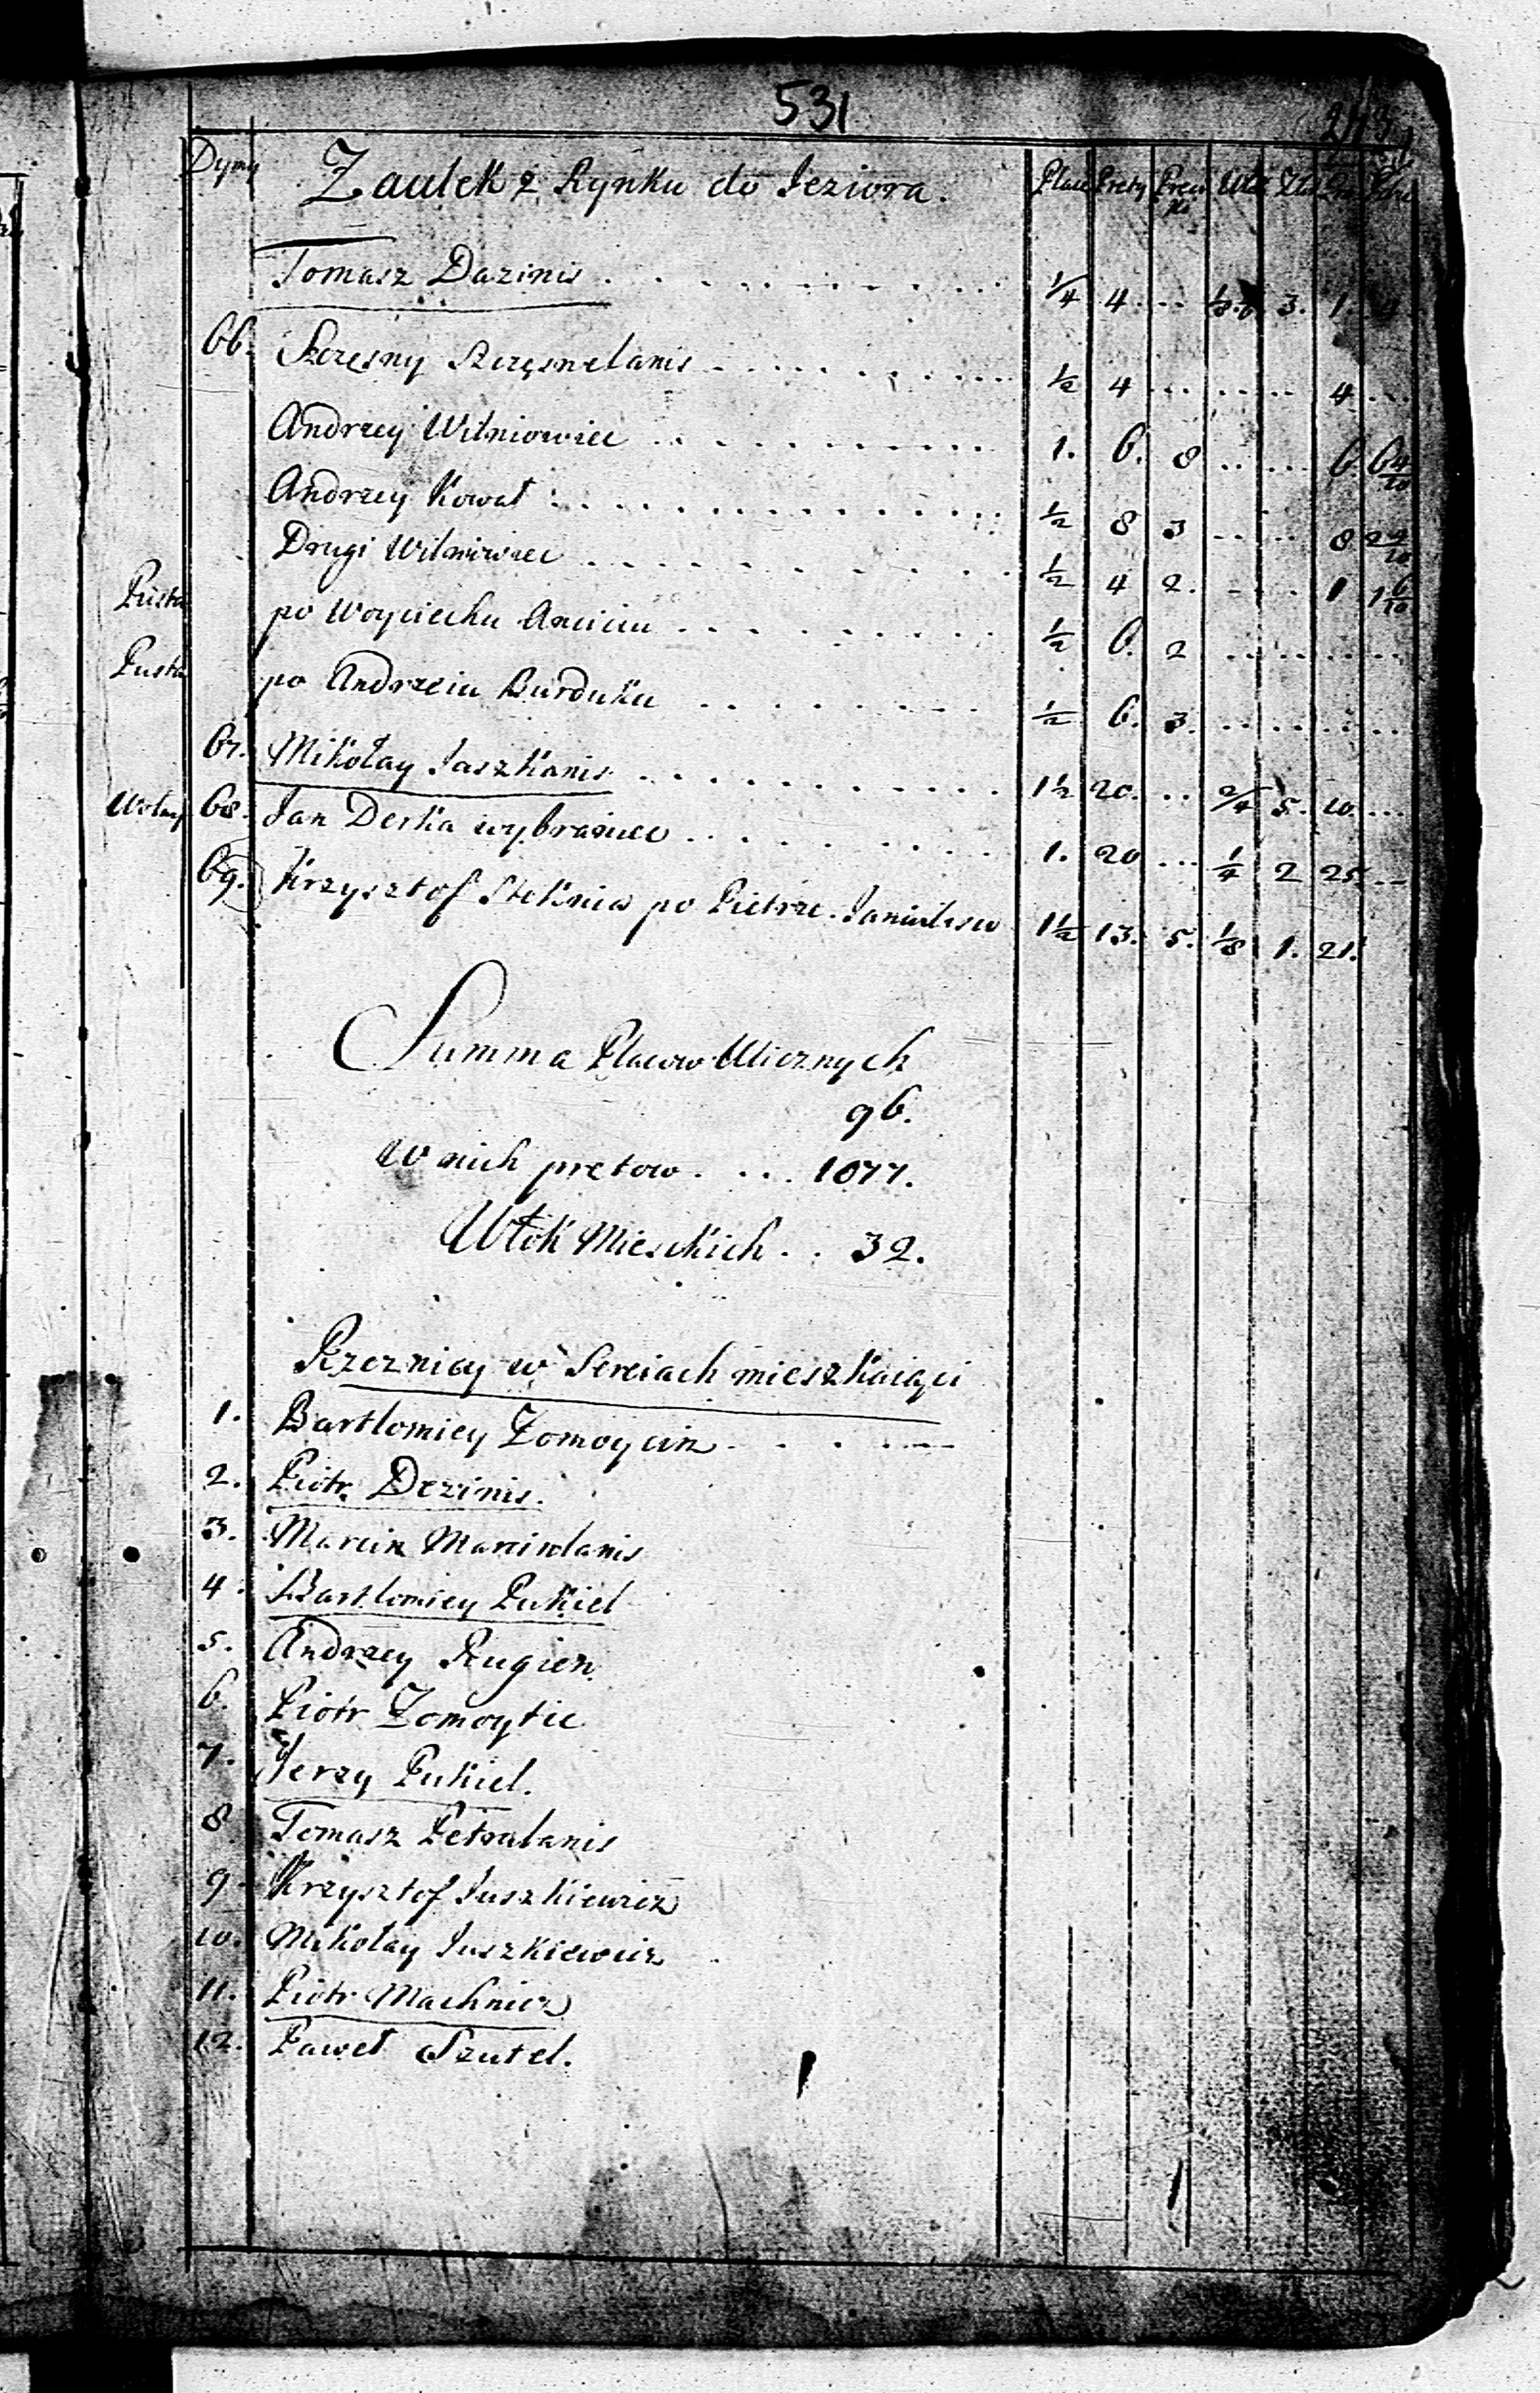 531
Dymy Zaulek z Rynku do Jeziora. Place Pręty Pręci ki Włó Zło
Tomasz Dazinis . . . . . . . . . . 1/4 4 ... 3. 1.
66. Szczęsny Szczęsnelanis . . . . . . . . 1/2 4 ... ... 4 ...
Andrzey Wilniowiec . . . . . . . . . 1. 6. 8 ... ... 6. 6 4/10
Andrzey Kowal . . . . . . . . . . . . 1/2 8 3 ... ... 8 2 4/10
Drugi Wilniowiec . . . . . . . . . . 1/2 4 2. ... 1 1 6/10
Pusta po Woyciechu . . . . . . . . . 1/2 6. 2 ... ...
Pusta po Andrzeiu Burduku . . . . . . . . 1/2 6. 3. ... ...
67. Mikołay Jaszkanis . . . . . . . . . . 1 1/2 20. ... 2/4 5. 10. ...
Wolny 68. Jan Derka wybraniec . . . . . . . . 1. 20 ... 1/4 2 25 ...
69. Krzysztof Steknis po Pietrze 1 1/2 13. 5. 1/8 1. 21.
Summa Placow Ulicznych
96.
W nich prętow . . . . 1077.
Włok Mieskich . . 32.
Rzeznicy w Sereiach mieszkaiąci
1. Bartlomiey Zomoycin . . . .
2. Piotr Dezinis.
3. Marcin Marcinlanis
4. Bartlomiey Pukiel
5. Andrzey Rugien
6. Piotr Zomoytic
7. Jerzy Pukiel.
8 Tomasz Petrulanis
9 Krzysztof Juszkiewicz
10. Mikołay Juszkiewicz
11. Piotr Machnicz
12. Paweł Szutel.